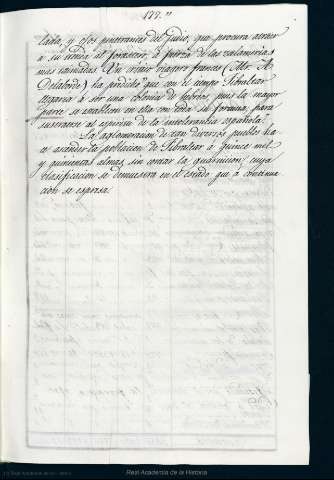 177.
lada, y ojos penetrantes del judio, que procura atraer
a su tienda al forastero, à fuerza de las zalamerias
mas estudiadas. Un célebre viagero frances (Mr. A.
Delaborde) ha predicho que con el tiempo Gibraltar
llegaria á ser una colonia de hebreos, pues la mayor
parte se establecen en ella con toda su fortuna, para
sustraerse al espiritu de la intolerancia española.
La aglomeracion de tan diversos pueblos ha-
ce ascender la poblacion de Gibraltar à quince mil
y quinientas almas, sin contar la guarnicion; cuya
clasificacion se demuestra en el estado que á continua-
cion se espresa.
Real Academia de la Historia